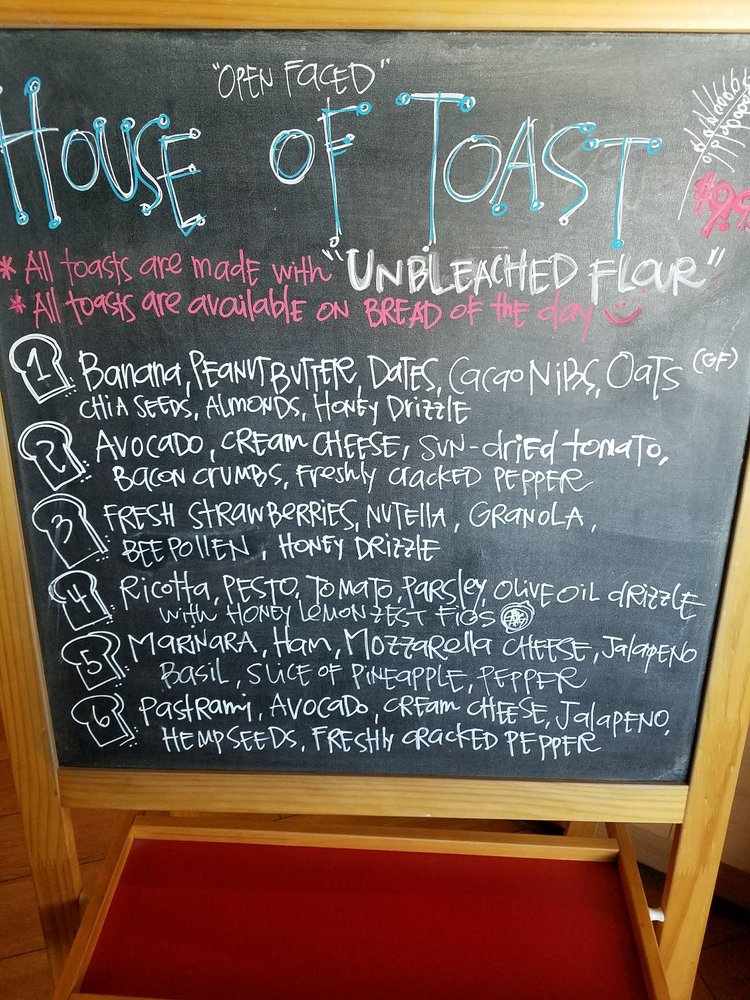 "OPEN FACED"
HOUSE OF TOAST
* All toasts are made with "UNBLEACHED FLOUR"
* All toasts are available on BREAD OF the day
1 Banana, PEANUT BUTTER, DATES, Cacao NiBS, Oats (GF)
CHIA SEEDS, ALMONDS, HONEY DRIZZLE
2 AVOCADO, CREAM CHEESE, SUN-dRied tomato,
Bacon CRUMBS, FResHly CRacked PEPPER
3 FRESH STRAWBERRIES, NUTELLA, GRANOLA,
BEE POLLEN, HONEY DRIZZLE
4 Ricotta, PESTO, TOMATO, PaRsley, OLIVE OIL dRIZZLE
with HONEY LEMON ZEST FIGS
5 MARINARA, Ham, Mozzarella CHEESE, Jalapeno
BASIL, SLICE OF PINEAPPLE, PEPPER
6 Pastrami, AVOCADO, CREAM CHEESE, JALAPENO,
HEMPSEEDS, FRESHLY CRACKED PEPPER